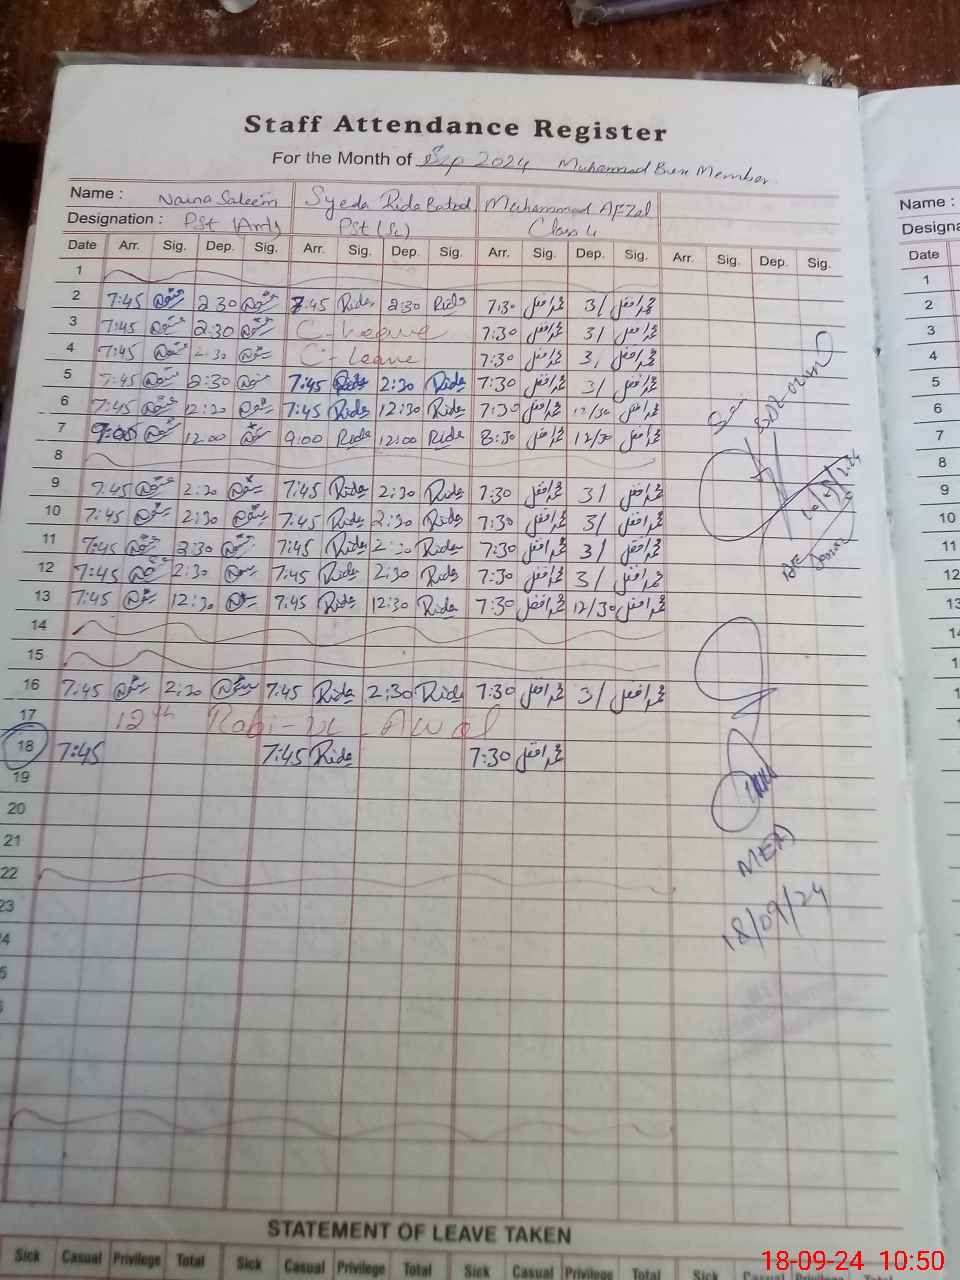 Staff Attendance Register
For the Month of Sep 2024 Muhammad Member
Name : Naina Saleem Syeda Rida Batool Muhammad AFZal Name :
Designation : Pst (Arts) Pst (Sc) Class 4 Designa
Date Arr. Sig. Dep. Sig. Arr. Sig. Dep. Sig. Arr. Sig. Dep. Sig. Arr. Sig. Dep. Sig. Date
1 1
2 7:45 2:30 7:45 Rida 2:30 Rida 7:30 محمد افضل 3/ محمد افضل 2
3 7:45 2:30 C-leave 7:30 محمد افضل 3/ محمد افضل 3
4 7:45 2:30 C-leave 7:30 محمد افضل 3/ محمد افضل 4
5 7:45 2:30 7:45 Rida 2:30 Rida 7:30 محمد افضل 3/ محمد افضل 5
6 7:45 12:30 7:45 Rida 12:30 Rida 7:30 محمد افضل 12/30 محمد افضل 6
7 9:00 12:00 9:00 Rida 12:00 Rida 8:30 محمد افضل 12/30 محمد افضل 7
8 8
9 7:45 2:30 7:45 Rida 2:30 Rida 7:30 محمد افضل 3/ محمد افضل 9
10 7:45 2:30 7:45 Rida 2:30 Rida 7:30 محمد افضل 3/ محمد افضل 10
11 7:45 2:30 7:45 Rida 2:30 Rida 7:30 محمد افضل 3/ محمد افضل 11
12 7:45 2:30 7:45 Rida 2:30 Rida 7:30 محمد افضل 3/ محمد افضل 12
13 7:45 12:30 7:45 Rida 12:30 Rida 7:30 محمد افضل 12/30 محمد افضل 13
14 14
15 15
16 7:45 2:30 7:45 Rida 2:30 Rida 7:30 محمد افضل 3/ محمد افضل 16
17 12th Rabi-ul-Awal 17
18 7:45 7:45 Rida 7:30 محمد افضل 18
19 19
20 20
21 21
22 22
23 23
4
5
MEA
18/09/24
STATEMENT OF LEAVE TAKEN
Sick Casual Privilege Total Sick Casual Privilege Total Sick Casual Privilege Total Sick Casual Privilege Total
18-09-24 10:50